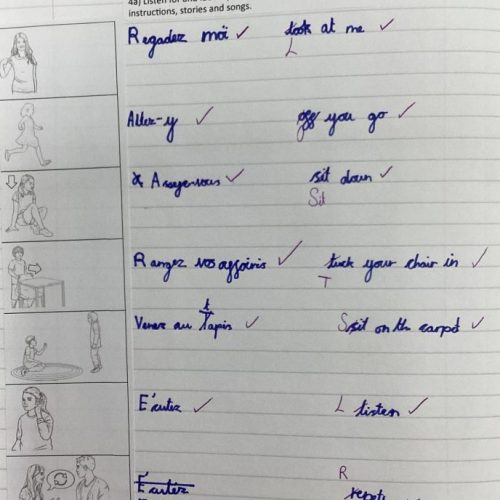 4a) Listen for and
instructions, stories and songs.
Regadez moi ✓ look at me ✓
L
Allez-y ✓ off you go ✓
Assayervous ✓ sit down ✓
Sit
Rangez vos affairis ✓ tuck your chair in ✓
T
t
Venez au tapis ✓ S sit on th carpet ✓
E'cutez ✓ L listen ✓
R
E'cutez repete